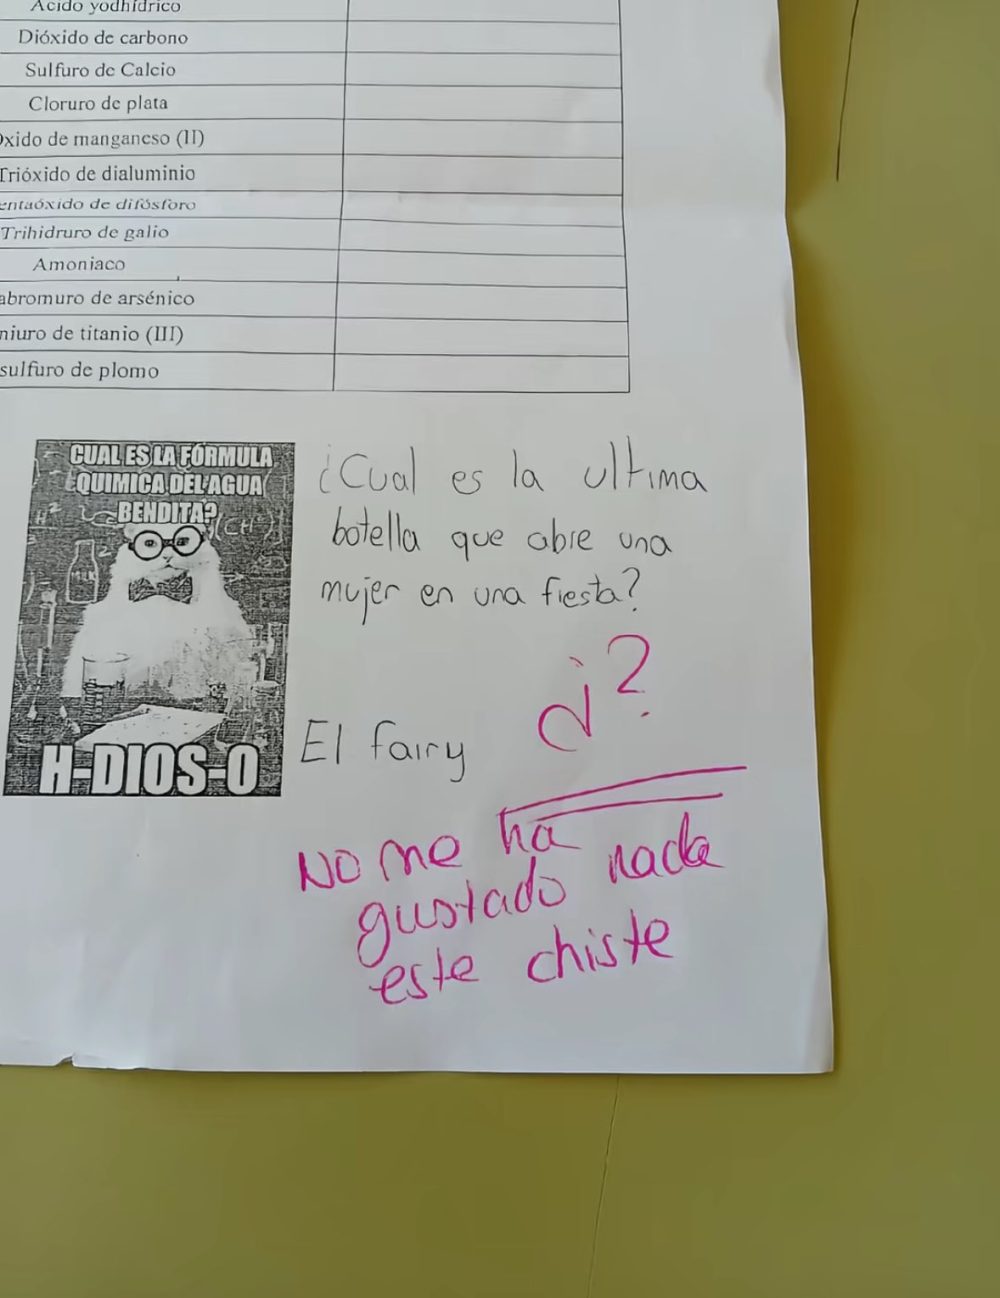 Acido yodhídrico
Dióxido de carbono
Sulfuro de Calcio
Cloruro de plata
Oxido de manganeso (II)
Trióxido de dialuminio
entaóxido de difósforo
Trihidruro de galio
Amoniaco
abromuro de arsénico
niuro de titanio (III)
sulfuro de plomo
CUAL ES LA FÓRMULA
QUIMICA DEL AGUA
BENDITA?
H-DIOS-O
¿Cual es la ultima
botella que abre una
mujer en una fiesta?
El fairy
¿?
No me ha
gustado nada
este chiste